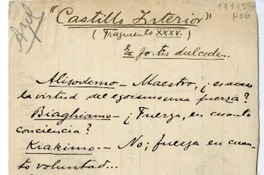 "Castillo Interior"
(Fragmento XXXV.)
Ex fortis dulcedo..
Alisodemo — Maestro, ¿es acaso
la virtud del egoismo una fuerza?
Biaghiamo — ¿Fuerza, en cuanto
conciencia?
Kiakimo — No; fuerza en cuan-
to voluntad...